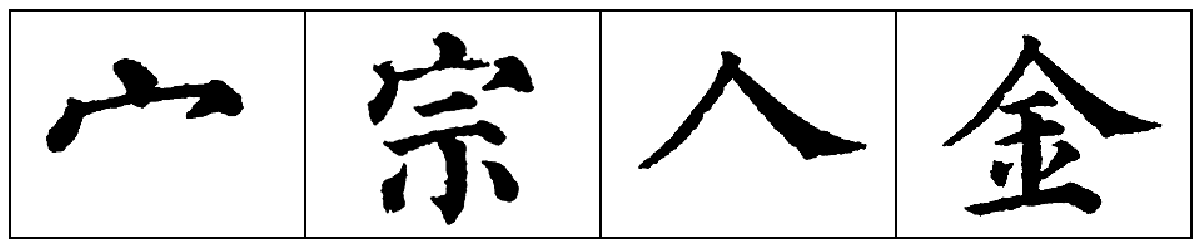 宀 宗 人 金